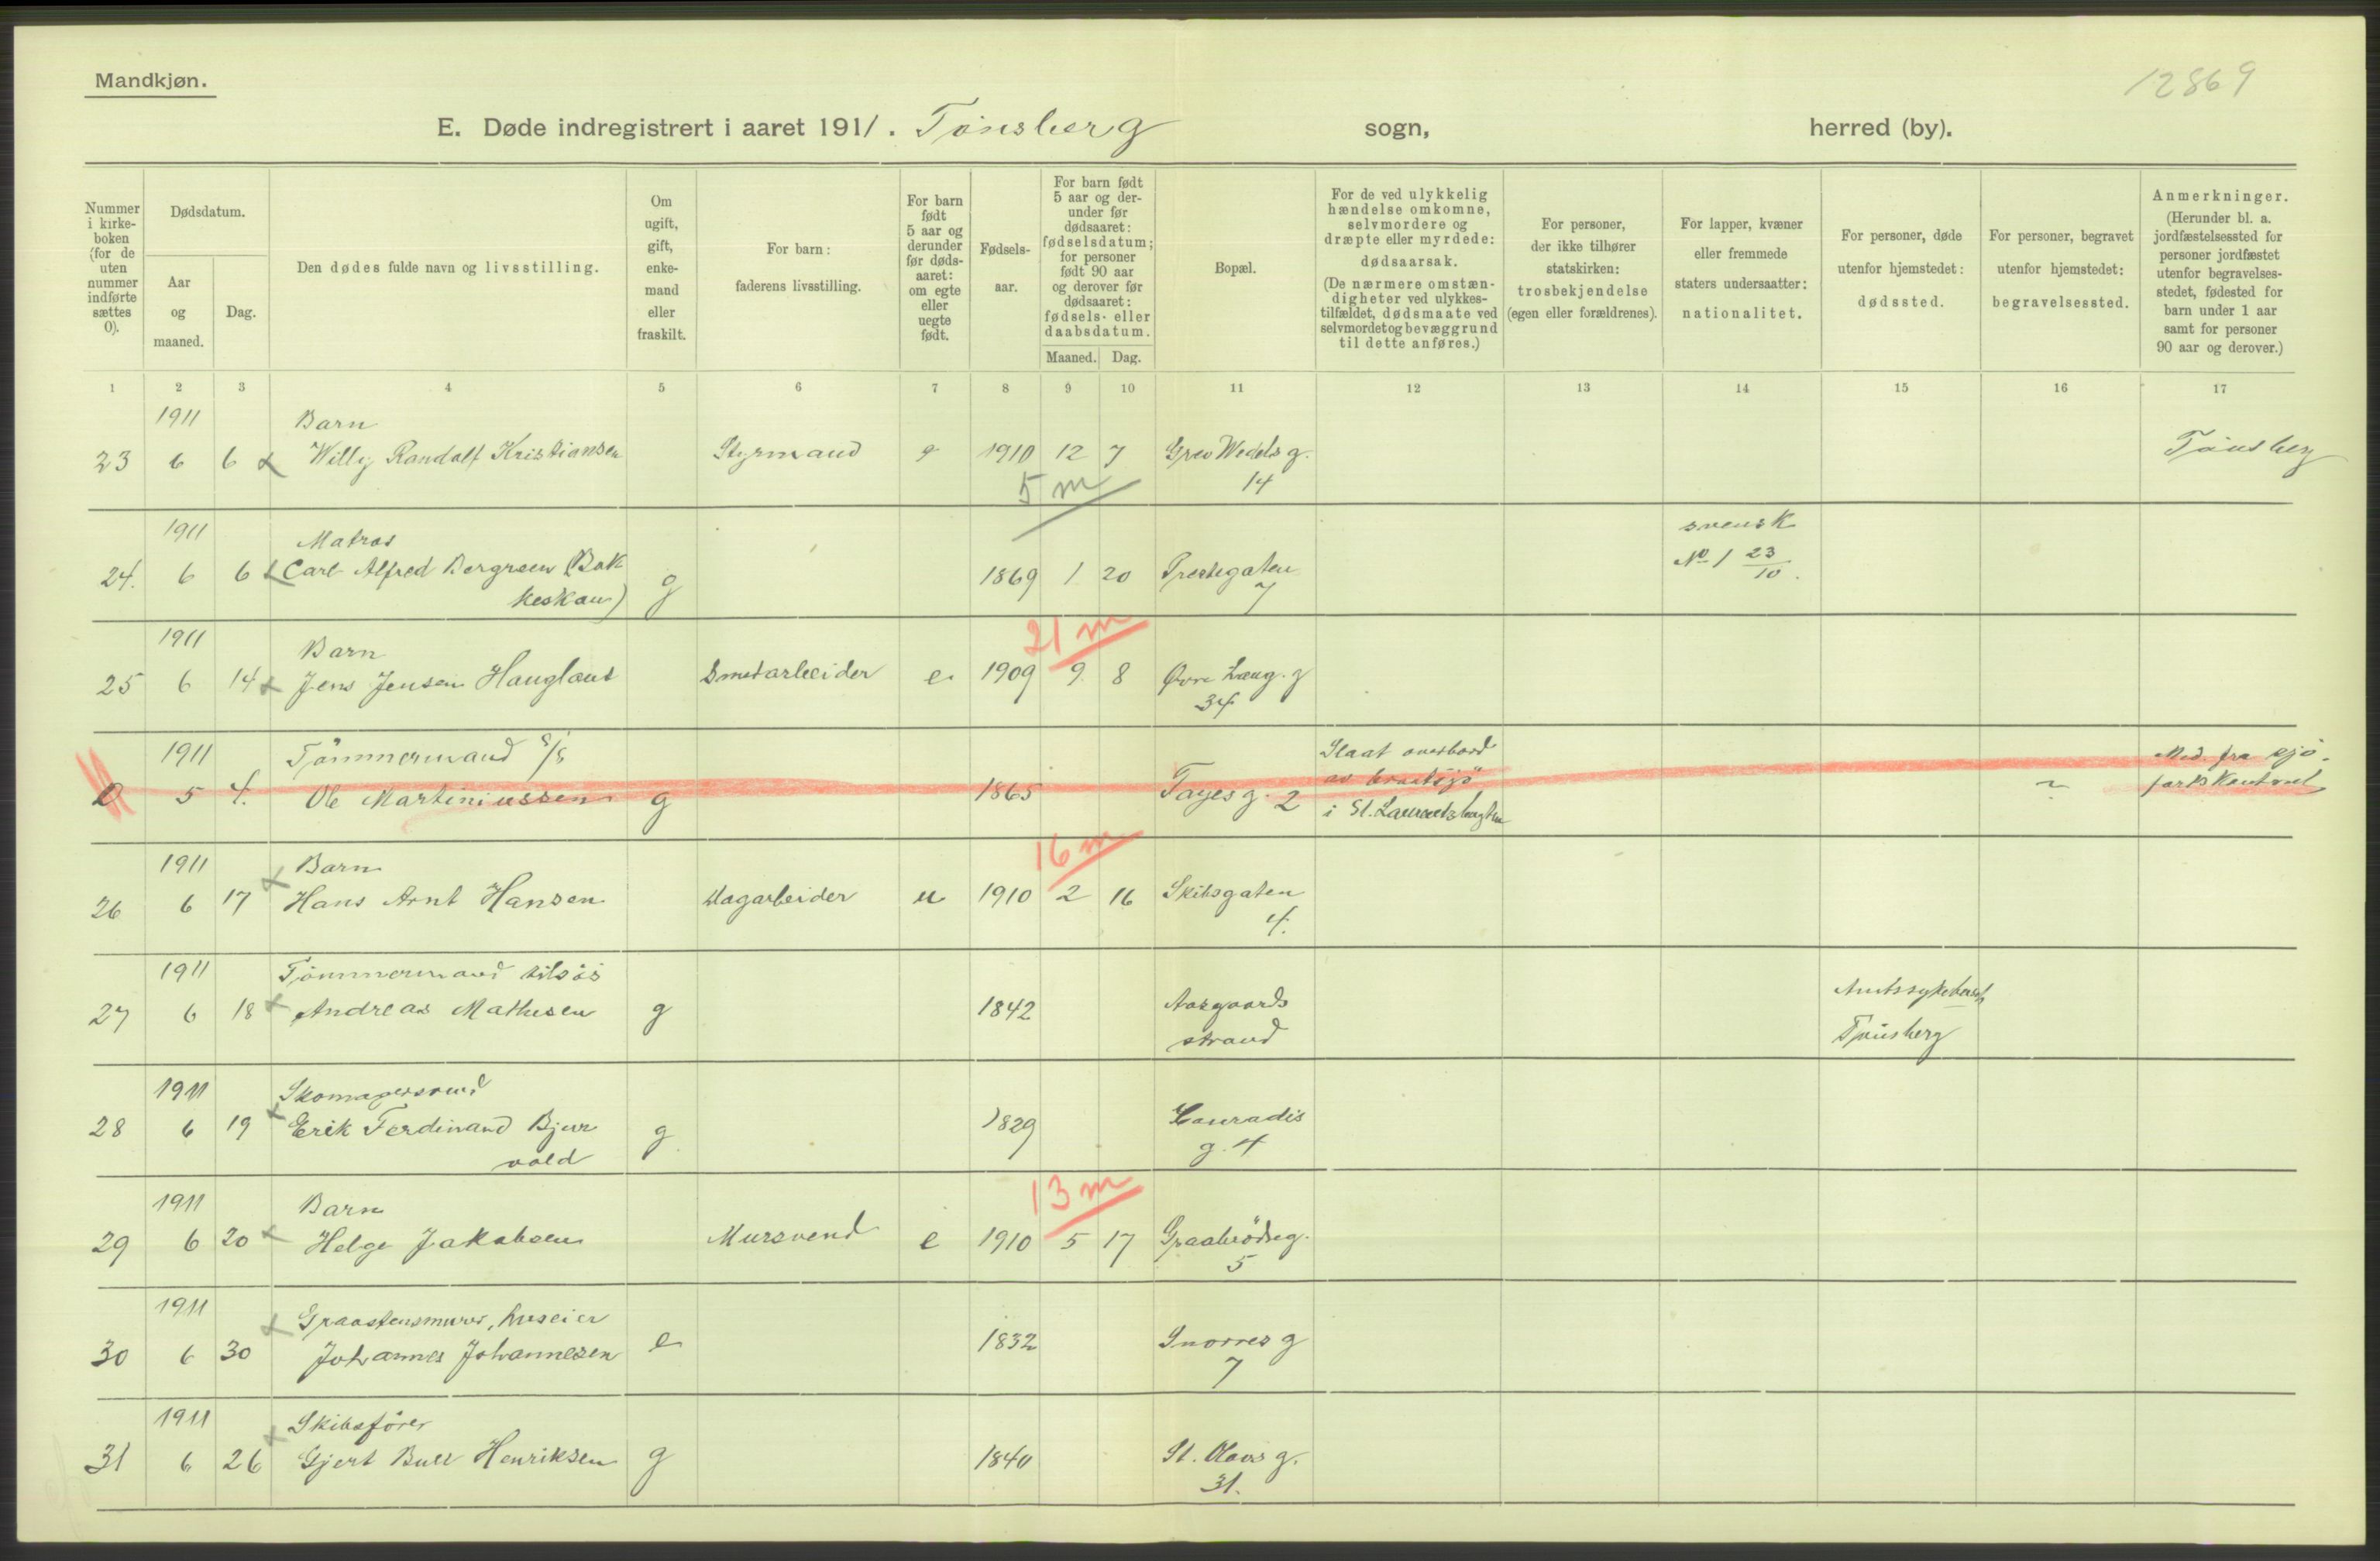 Mandkjøn.
12869
E. Døde indregistrert i aaret 1911. Tönsberg sogn, herred (by).
Nummer i kirke-boken (for de uten nummer indførte sættes 0).
Dødsdatum.
Aar og maaned.
Dag.
Den dødes fulde navn og livsstilling.
Om ugift, gift, enke-mand eller fraskilt.
For barn: faderens livsstilling.
For barn født 5 aar og derunder før døds-aaret: om egte eller uegte født.
Fødsels-aar.
For barn født 5 aar og der-under før dødsaaret: fødselsdatum; for personer født 90 aar og derover før dødsaaret: fødsels- eller daabsdatum.
Maaned. Dag.
Bopæl.
For de ved ulykkelig hændelse omkomne, selvmordere og dræpte eller myrdede: dødsaarsak.
(De nærmere omstæn-digheter ved ulykkes-tilfældet, dødsmaate ved selvmordet og bevæggrund til dette anføres.)
For personer, der ikke tilhører statskirken: trosbekjendelse (egen eller forældrenes).
For lapper, kvæner eller fremmede staters undersaatter: nationalitet.
For personer, døde utenfor hjemstedet: dødssted.
For personer, begravet utenfor hjemstedet: begravelsessted.
Anmerkninger.
(Herunder bl. a. jordfæstelsessted for personer jordfæstet utenfor begravelses-stedet, fødested for barn under 1 aar samt for personer 90 aar og derover.)
1 2 3 4 5 6 7 8 9 10 11 12 13 14 15 16 17
1911 Barn
23 6 6 Willy Randolf Kristiansen Styrmand e 1910 12 7 Grev Wedels g. Tönsberg
5 m 14
1911 Matros svensk
24. 6 6 Carl Alfred Bergreen (Bak g 1869 1 20 Prestegaten No 1 23/10.
keskau) 7
1911 Barn 21 m
25 6 14 Jens Jensen Haugland Smedarbeider e 1909 9 8 Øvre Lang. g
34
1911 Tömmermand s/s Slaat overbord Med. fra sjö-
0 5 4. Ole Martiniussen g 1865 Fayes g. 2 av braatsjö farts Kontoret
i St. Laurentsbugten
1911 Barn 16 m
26 6 17 Hans Arnt Hansen Dagarbeider u 1910 2 16 Skibsgaten
4.
1911 Tömmermand tilsös
27 6 18 Andreas Mathisen g 1842 Aasgaard Amtssykehuset
strand Tönsberg
1911 Skomagersvend
28 6 19 Erik Ferdinand Bjur g 1829 Conradis
vold g. 4
1911 Barn 13 m
29 6 20 Helge Jakobsen Mursvend e 1910 5 17 Graabrödreg.
5
1911 Graastensmurer, huseier
30 6 30 Johannes Johannesen e 1832 Snorres g
7
1911 Skibsfører
31 6 26 Gjert Bull Henriksen g 1840 St. Olavs g.
31.